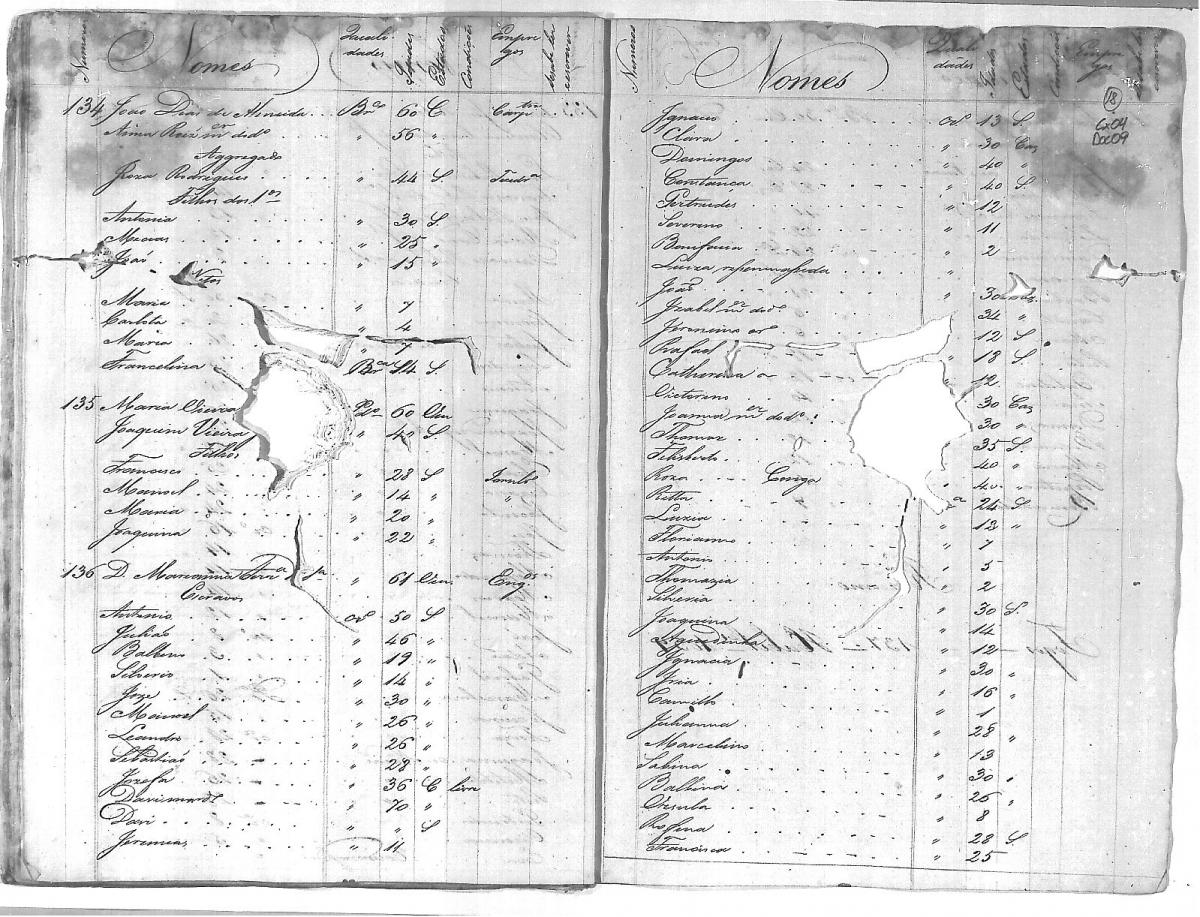 Numeros Nomes Quali dades Idades Estados Condições Empre gos Sabe ler escrever
134 João Dias de Almeida Br.co 60 C Carp.tro
Anna Roiz m.er do d.o " 56 "
Aggregado
Roza Rodrigues " 44 S.
Filhos dos 1.os
Antonia " 30 S.
" 25 "
José " 15 "
Netos
Maria " 7
Carlota " 4
Maria " 7
Francelina Br.ca 14 S
135 Maria Vieira 60
Joaquim Vieira " S
Filhos
Francisco " 28 S
Manoel " 14 " "
Maria " 20 "
Joaquina " 22 "
136 D. Marianna " 61 Eng.os
Escravos
Antonio 50 S
Julião " 46 "
Balbino " 19 "
Silverio " 14 "
Joze " 30 "
Manoel " 26 "
Leandro " 26 "
Sebastião " 28 "
Jozefa " 36 C livre
" 70 "
Davi " " S
Jeremias " 11
Numeros Nomes Quali dades Idades Estados Empre gos
18
Cx04
Doc09
Ignacio 13 S.
Clara " 30 Caz
Domingos " 40 "
Constança " 40 S.
Gertrudes " 12
Severino " 11
Bonifacia " 2
Luiza
João " 30
Izabel m.er do d.o " 34 "
Jeronima 12 S
Rafael " 18 S.
Catharina 12
Victorino 30 Caz
Joanna m.er do d.o 30 "
Thomaz 35 S.
Felisberto 40 "
Roza Conga 40 "
Ritta 24 S
Luzia " 12 "
Floriano " 7
Antonio " 5
Thomazia " 2
Silveria " 30 S.
Joaquina " 14
" 12 "
Ignacia " 30 "
Iria " 16 "
Camillo " 1
Julianna " 28 "
Marcelino " 13
Sabina " 30 "
Balbina " 26 "
Ursula " 8
Rofina " 28 S.
Francisca " 25